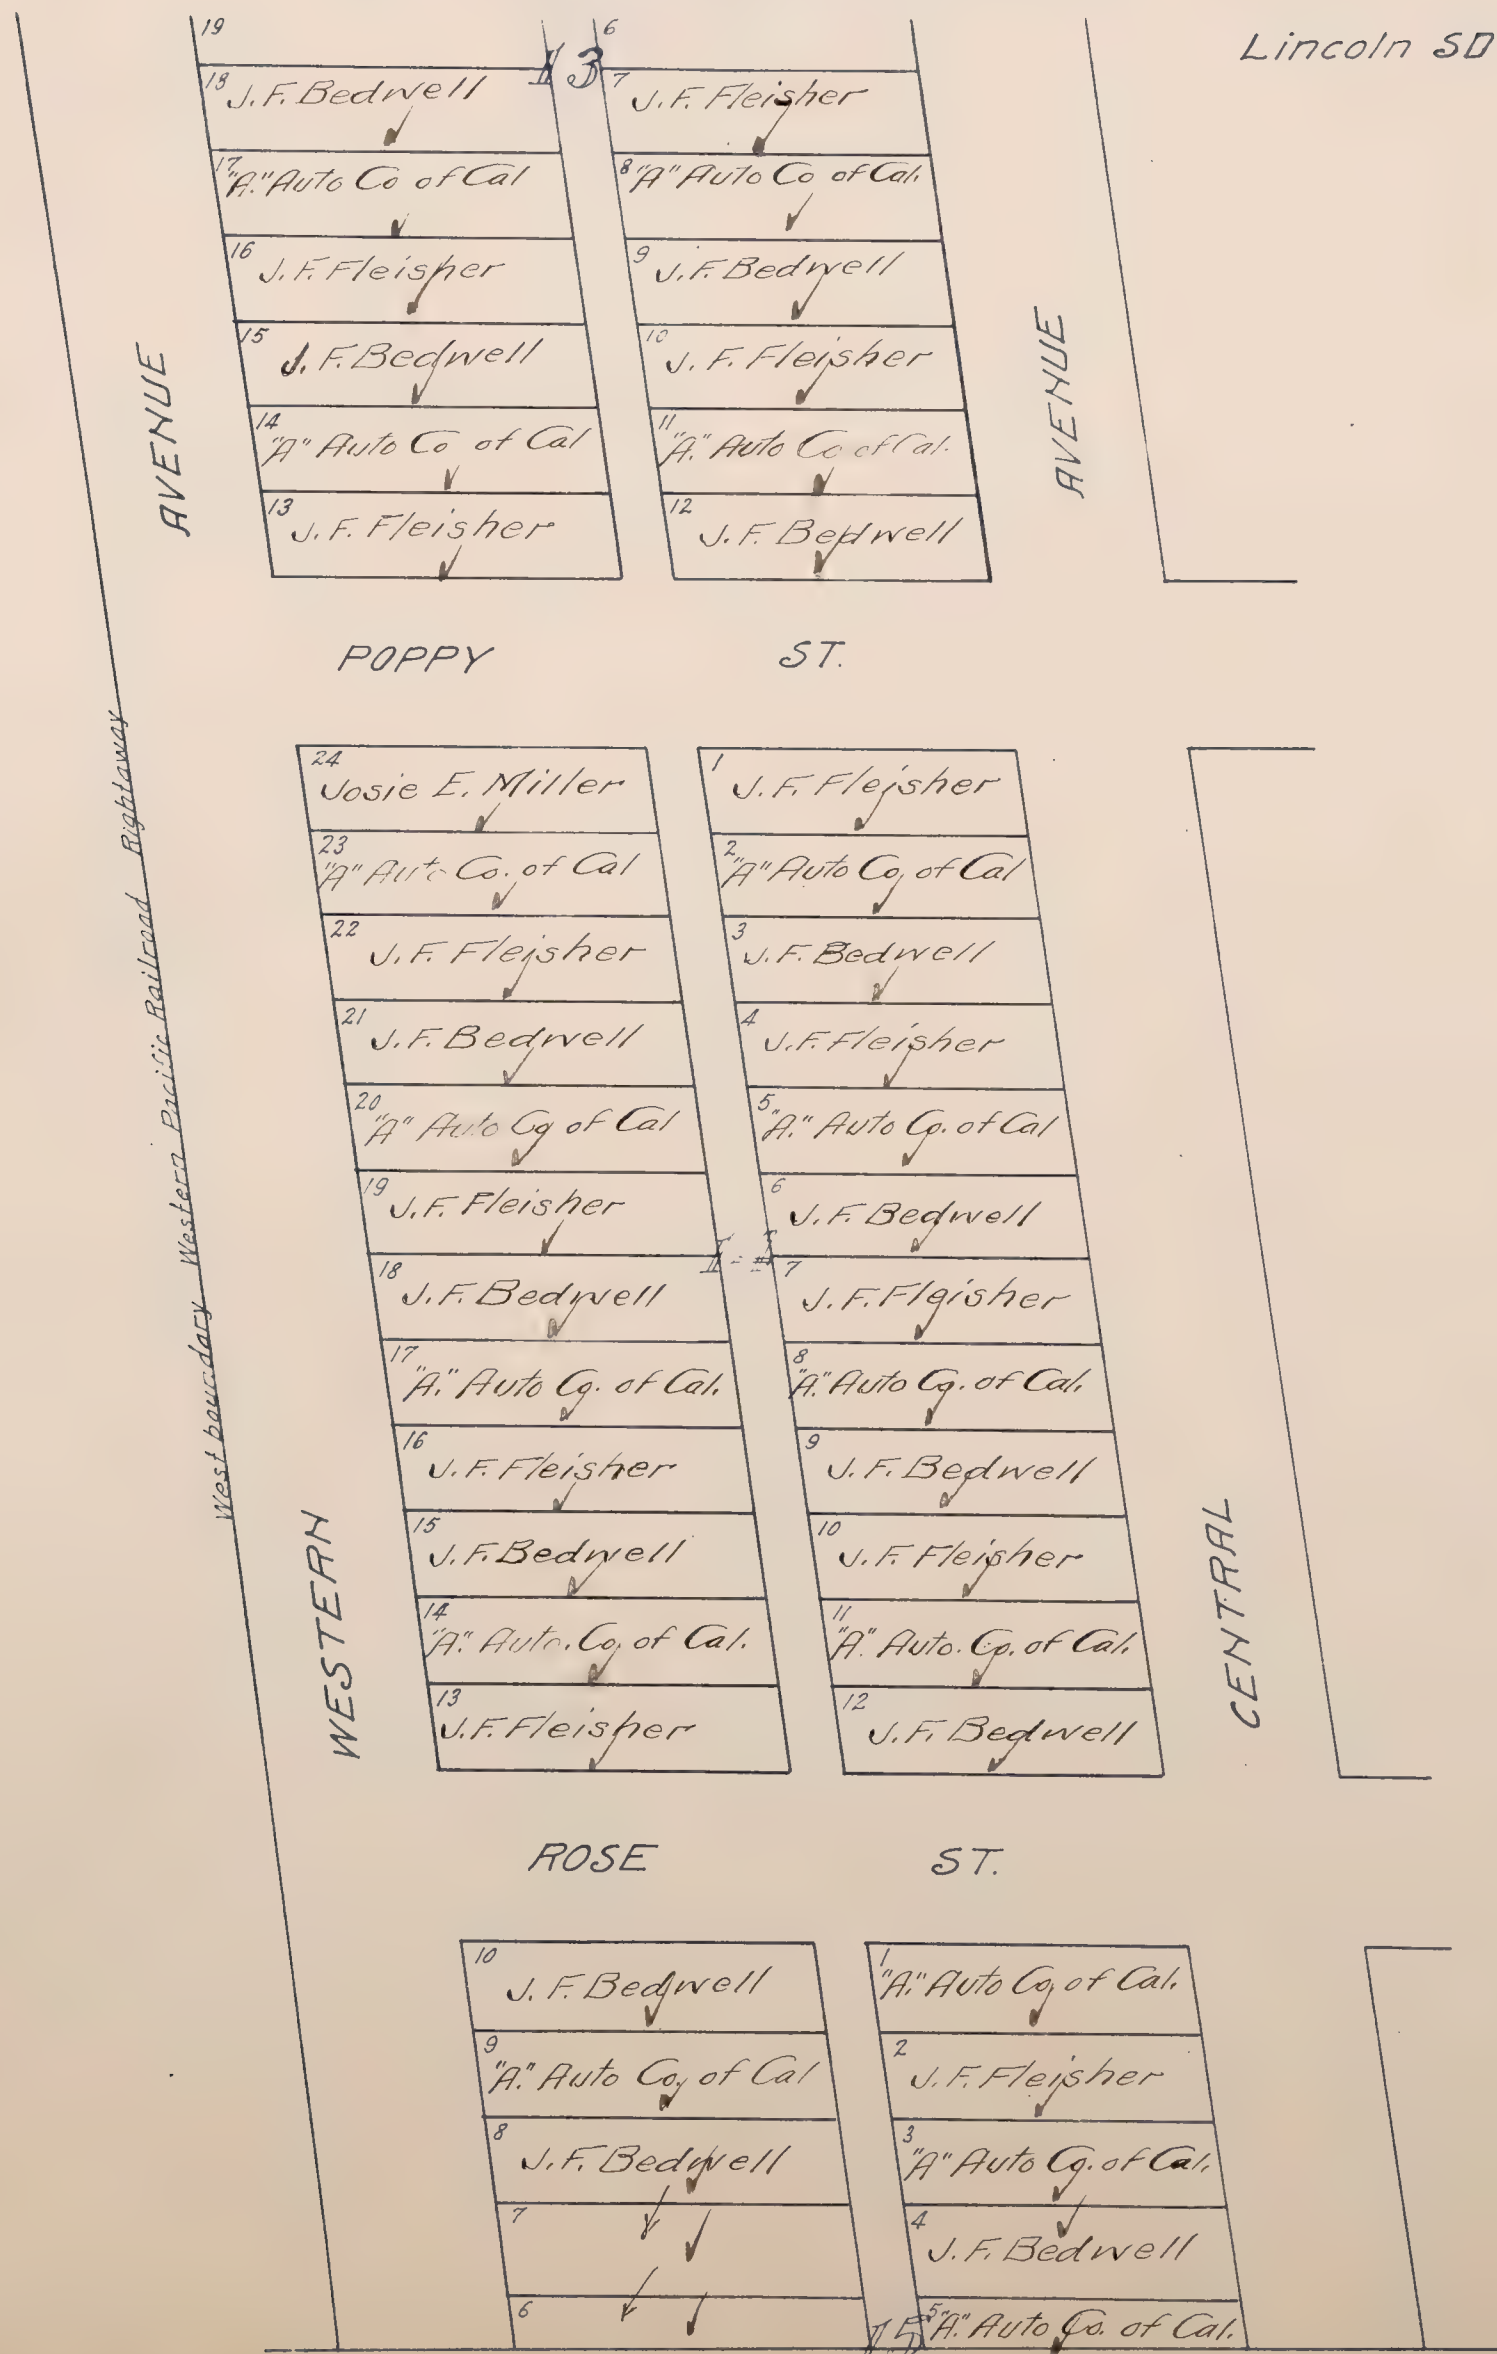 Lincoln SD
19
18 J.F. Bedwell
17 "A." Auto Co of Cal
16 J.F. Fleisher
15 J.F. Bedwell
14 "A" Auto Co of Cal
13 J.F. Fleisher
3
6
7 J.F. Fleisher
8 "A" Auto Co of Cal.
9 J.F. Bedwell
10 J.F. Fleisher
11 "A." Auto Co of Cal.
12 J.F. Bedwell
AVENUE
AVENUE
POPPY ST.
West boundary Western Pacific Railroad Rightaway
24 Josie E. Miller
23 "A" Auto Co. of Cal
22 J.F. Fleisher
21 J.F. Bedwell
20 "A" Auto Co of Cal
19 J.F. Fleisher
18 J.F. Bedwell
17 "A." Auto Co. of Cal.
16 J.F. Fleisher
15 J.F. Bedwell
14 "A." Auto. Co. of Cal.
13 J.F. Fleisher
1 J.F. Fleisher
2 "A" Auto Co. of Cal
3 J.F. Bedwell
4 J.F. Fleisher
5 "A." Auto Co. of Cal
6 J.F. Bedwell
7 J.F. Fleisher
8 "A." Auto Co. of Cal.
9 J.F. Bedwell
10 J.F. Fleisher
11 "A." Auto. Co. of Cal.
12 J.F. Bedwell
WESTERN
CENTRAL
ROSE ST.
10 J.F. Bedwell
9 "A." Auto Co. of Cal
8 J.F. Bedwell
7
6
1 "A." Auto Co. of Cal.
2 J.F. Fleisher
3 "A" Auto Co. of Cal.
4 J.F. Bedwell
5 "A." Auto Co. of Cal.
15